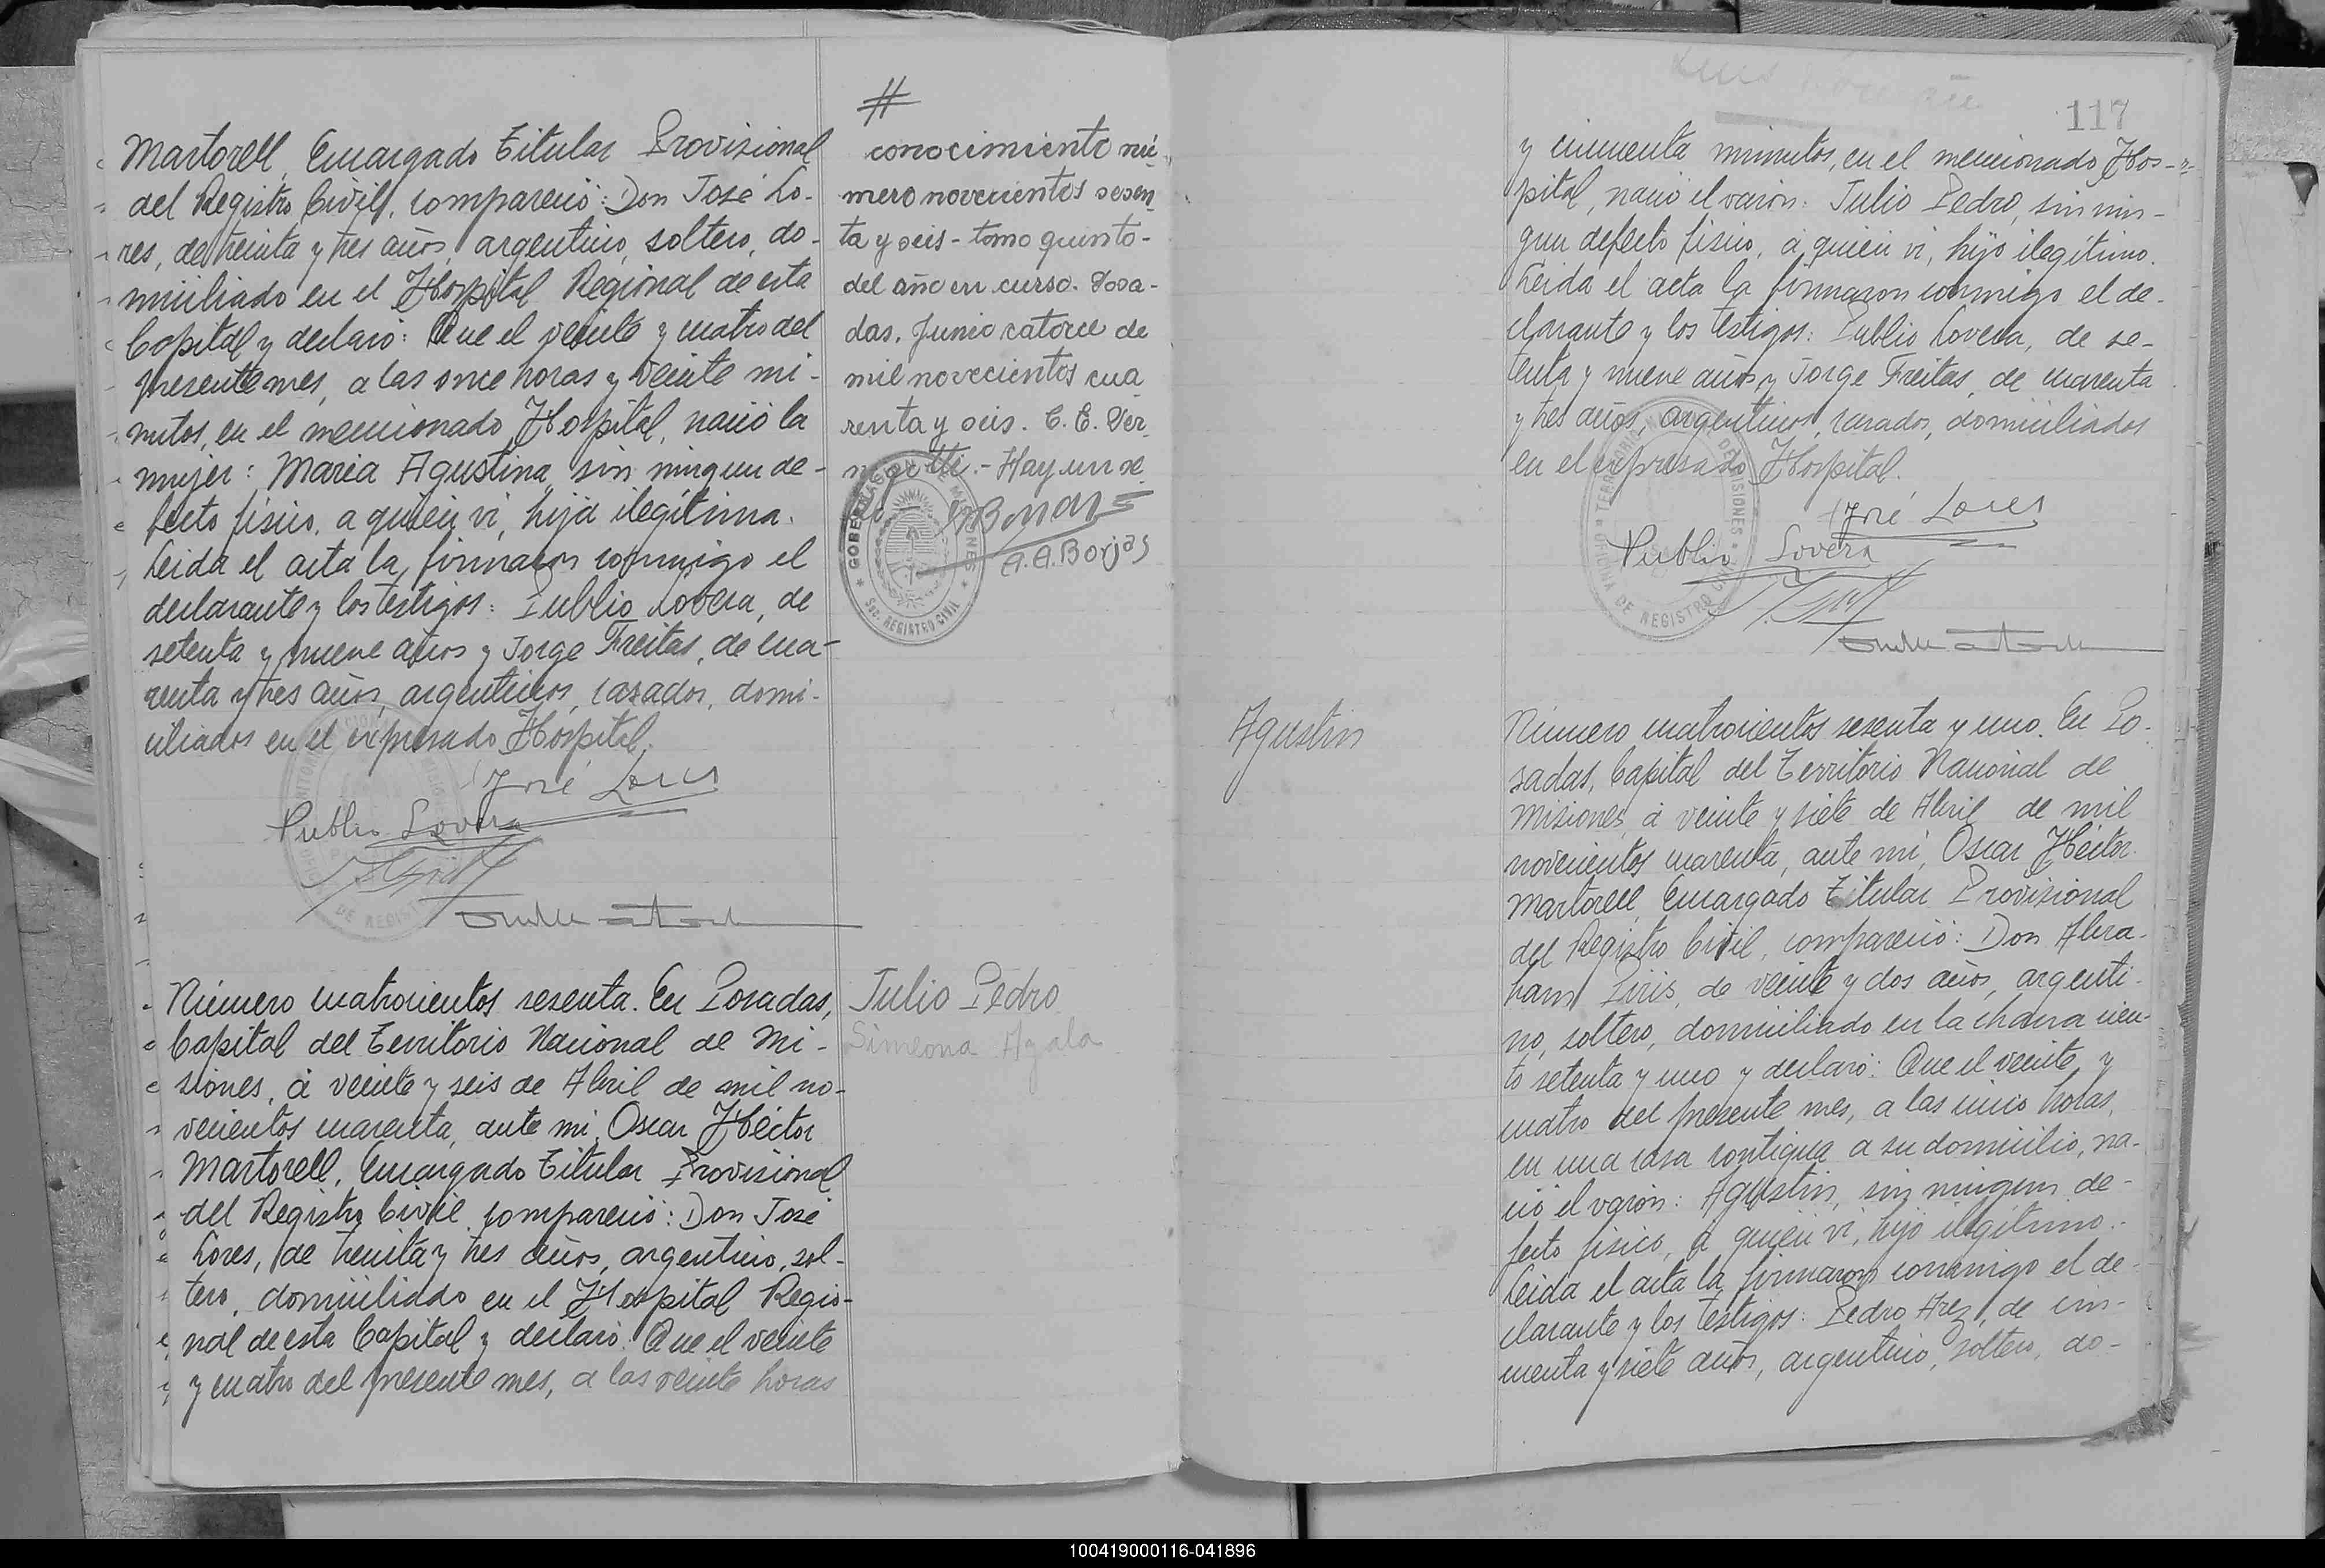 Martorell, Encargado Titular Provisional
del Registro Civil, compareció: Don José Lo-
res, de treinta y tres años, argentino, soltero, do-
miciliado en el Hospital Regional de esta
Capital y declaró: Que el veinte y cuatro del
presente mes, a las once horas y veinte mi-
nutos, en el mencionado Hospital, nació la
mujer: Maria Agustina, sin ningun de-
fecto fisico, a quien vi, hija ilegítima.
Leida el acta la firmaron conmigo el
declarante y los testigos: Publio Lovera, de
setenta y nueve años y Jorge Freitas, de cua-
renta y tres años, argentinos, casados, domi-
ciliados en el expresado Hospital.
José Lores
Publio Lovera
#
conocimiento nú-
mero novecientos sesen-
ta y seis - tomo quinto -
del año en curso. Posa-
das, Junio catorce de
mil novecientos cua
renta y seis. C. E. Ver-
Hay un se
A. A. Borjas
GOBERNACION DE MISIONES
Sec. REGISTRO CIVIL
Número cuatrocientos sesenta. En Posadas,
Capital del Territorio Nacional de Mi-
siones, á veinte y seis de Abril de mil no-
vecientos cuarenta, ante mi, Oscar Héctor
Martorell, Encargado Titular Provisional
del Registro Civil, compareció: Don José
Lores, de treinta y tres años, argentino, sol-
tero, domiciliado en el Hospital Regio-
nal de esta Capital y declaró: Que el veinte
y cuatro del presente mes, a las veinte horas
Julio Pedro
Simeona Ayala
117
y cincuenta minutos, en el mencionado Hos-
pital, nació el varón: Julio Pedro, sin nin-
gun defecto fisico, a quien vi, hijo ilegítimo.
Leida el acta la firmaron conmigo el de-
clarante y los testigos: Publio Lovera, de se-
tenta y nueve años y Jorge Freitas, de cuarenta
y tres años, argentinos, casados, domiciliados
en el expresado Hospital.
José Lores
Publio Lovera
Agustin
Número cuatrocientos sesenta y uno. En Po-
sadas, Capital del Territorio Nacional de
Misiones, á veinte y siete de Abril de mil
novecientos cuarenta, ante mi, Oscar Héctor
Martorell, Encargado Titular Provisional
del Registro Civil, compareció: Don Abra-
ham Piris, de veinte y dos años, argenti-
no, soltero, domiciliado en la chacra cien-
to setenta y uno y declaró: Que el veinte y
cuatro del presente mes, a las cinco horas,
en una casa contigua a su domicilio, na-
ció el varón: Agustin, sin ningun de-
fecto fisico, a quien vi, hijo ilegítimo.-
Leida el acta la firmaron conmigo el de-
clarante y los testigos: Pedro Arez, de cin-
cuenta y siete años, argentino, soltero, do-
100419000116-041896